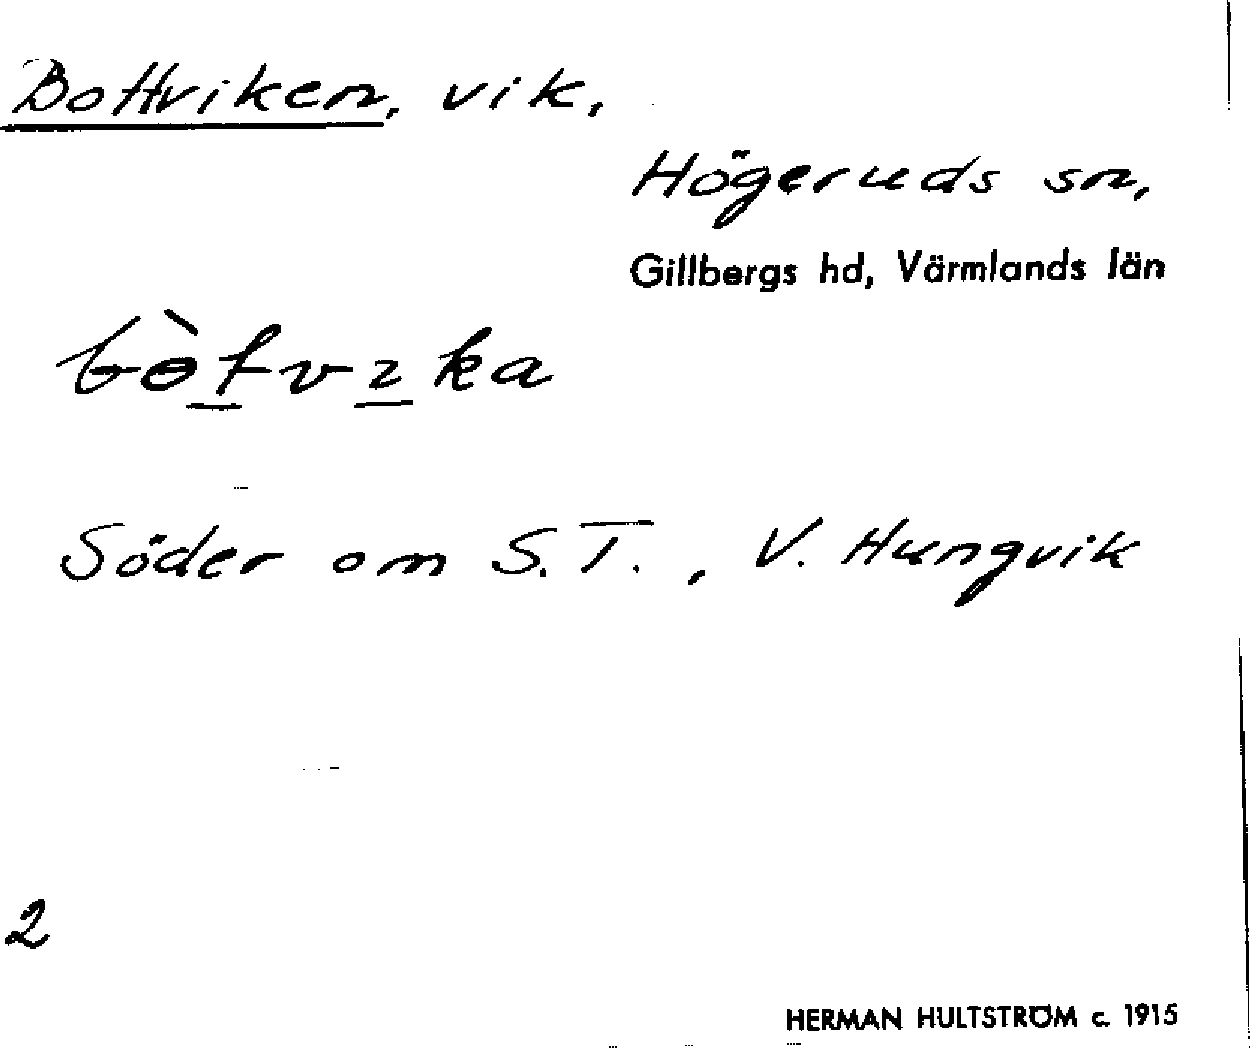 Bottviken, vik,
Högeruds sn,
Gillbergs hd, Värmlands län
bɵ̀tvıka
Söder om S. T., V. Hungvik
2
HERMAN HULTSTRÖM c. 1915